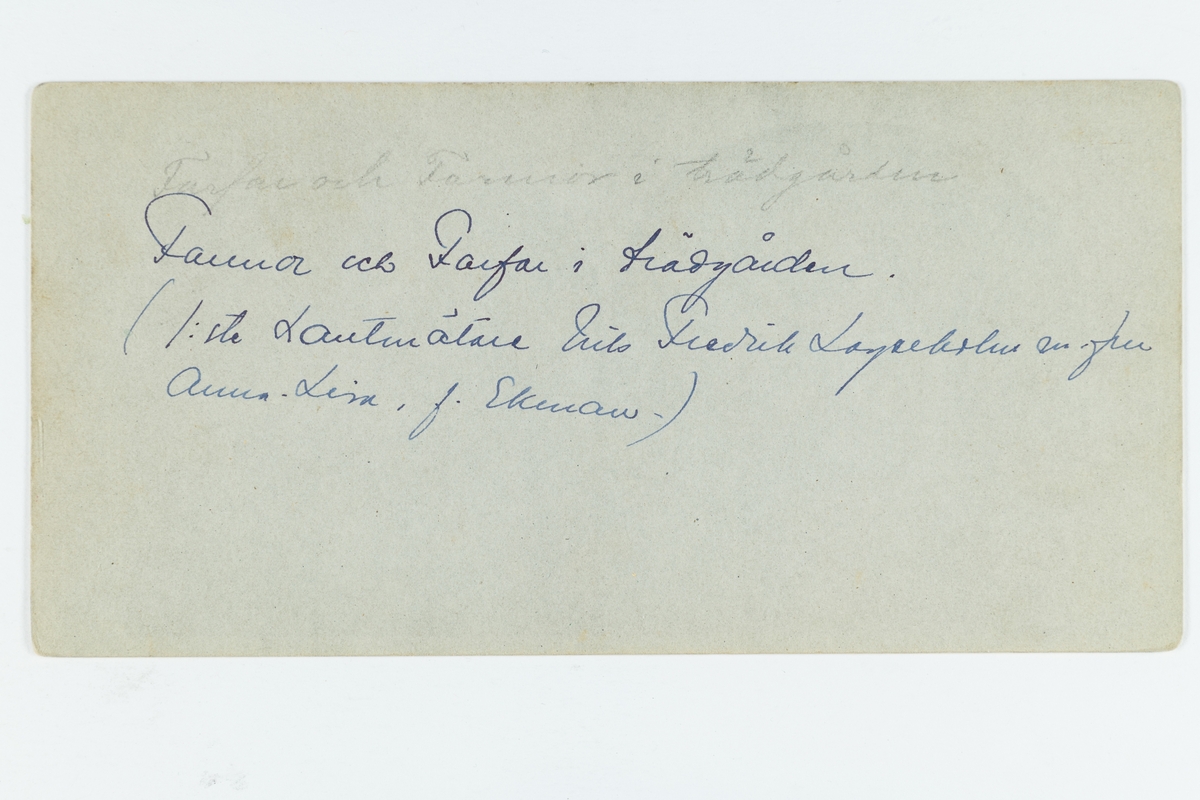 Farfar och Farmor i trädgården
Farmor och Farfar i trädgården.
(1:ste Lantmätare Nils Fredrik Lagerholm m. fru
Anna-Lisa, f. Ekman.)